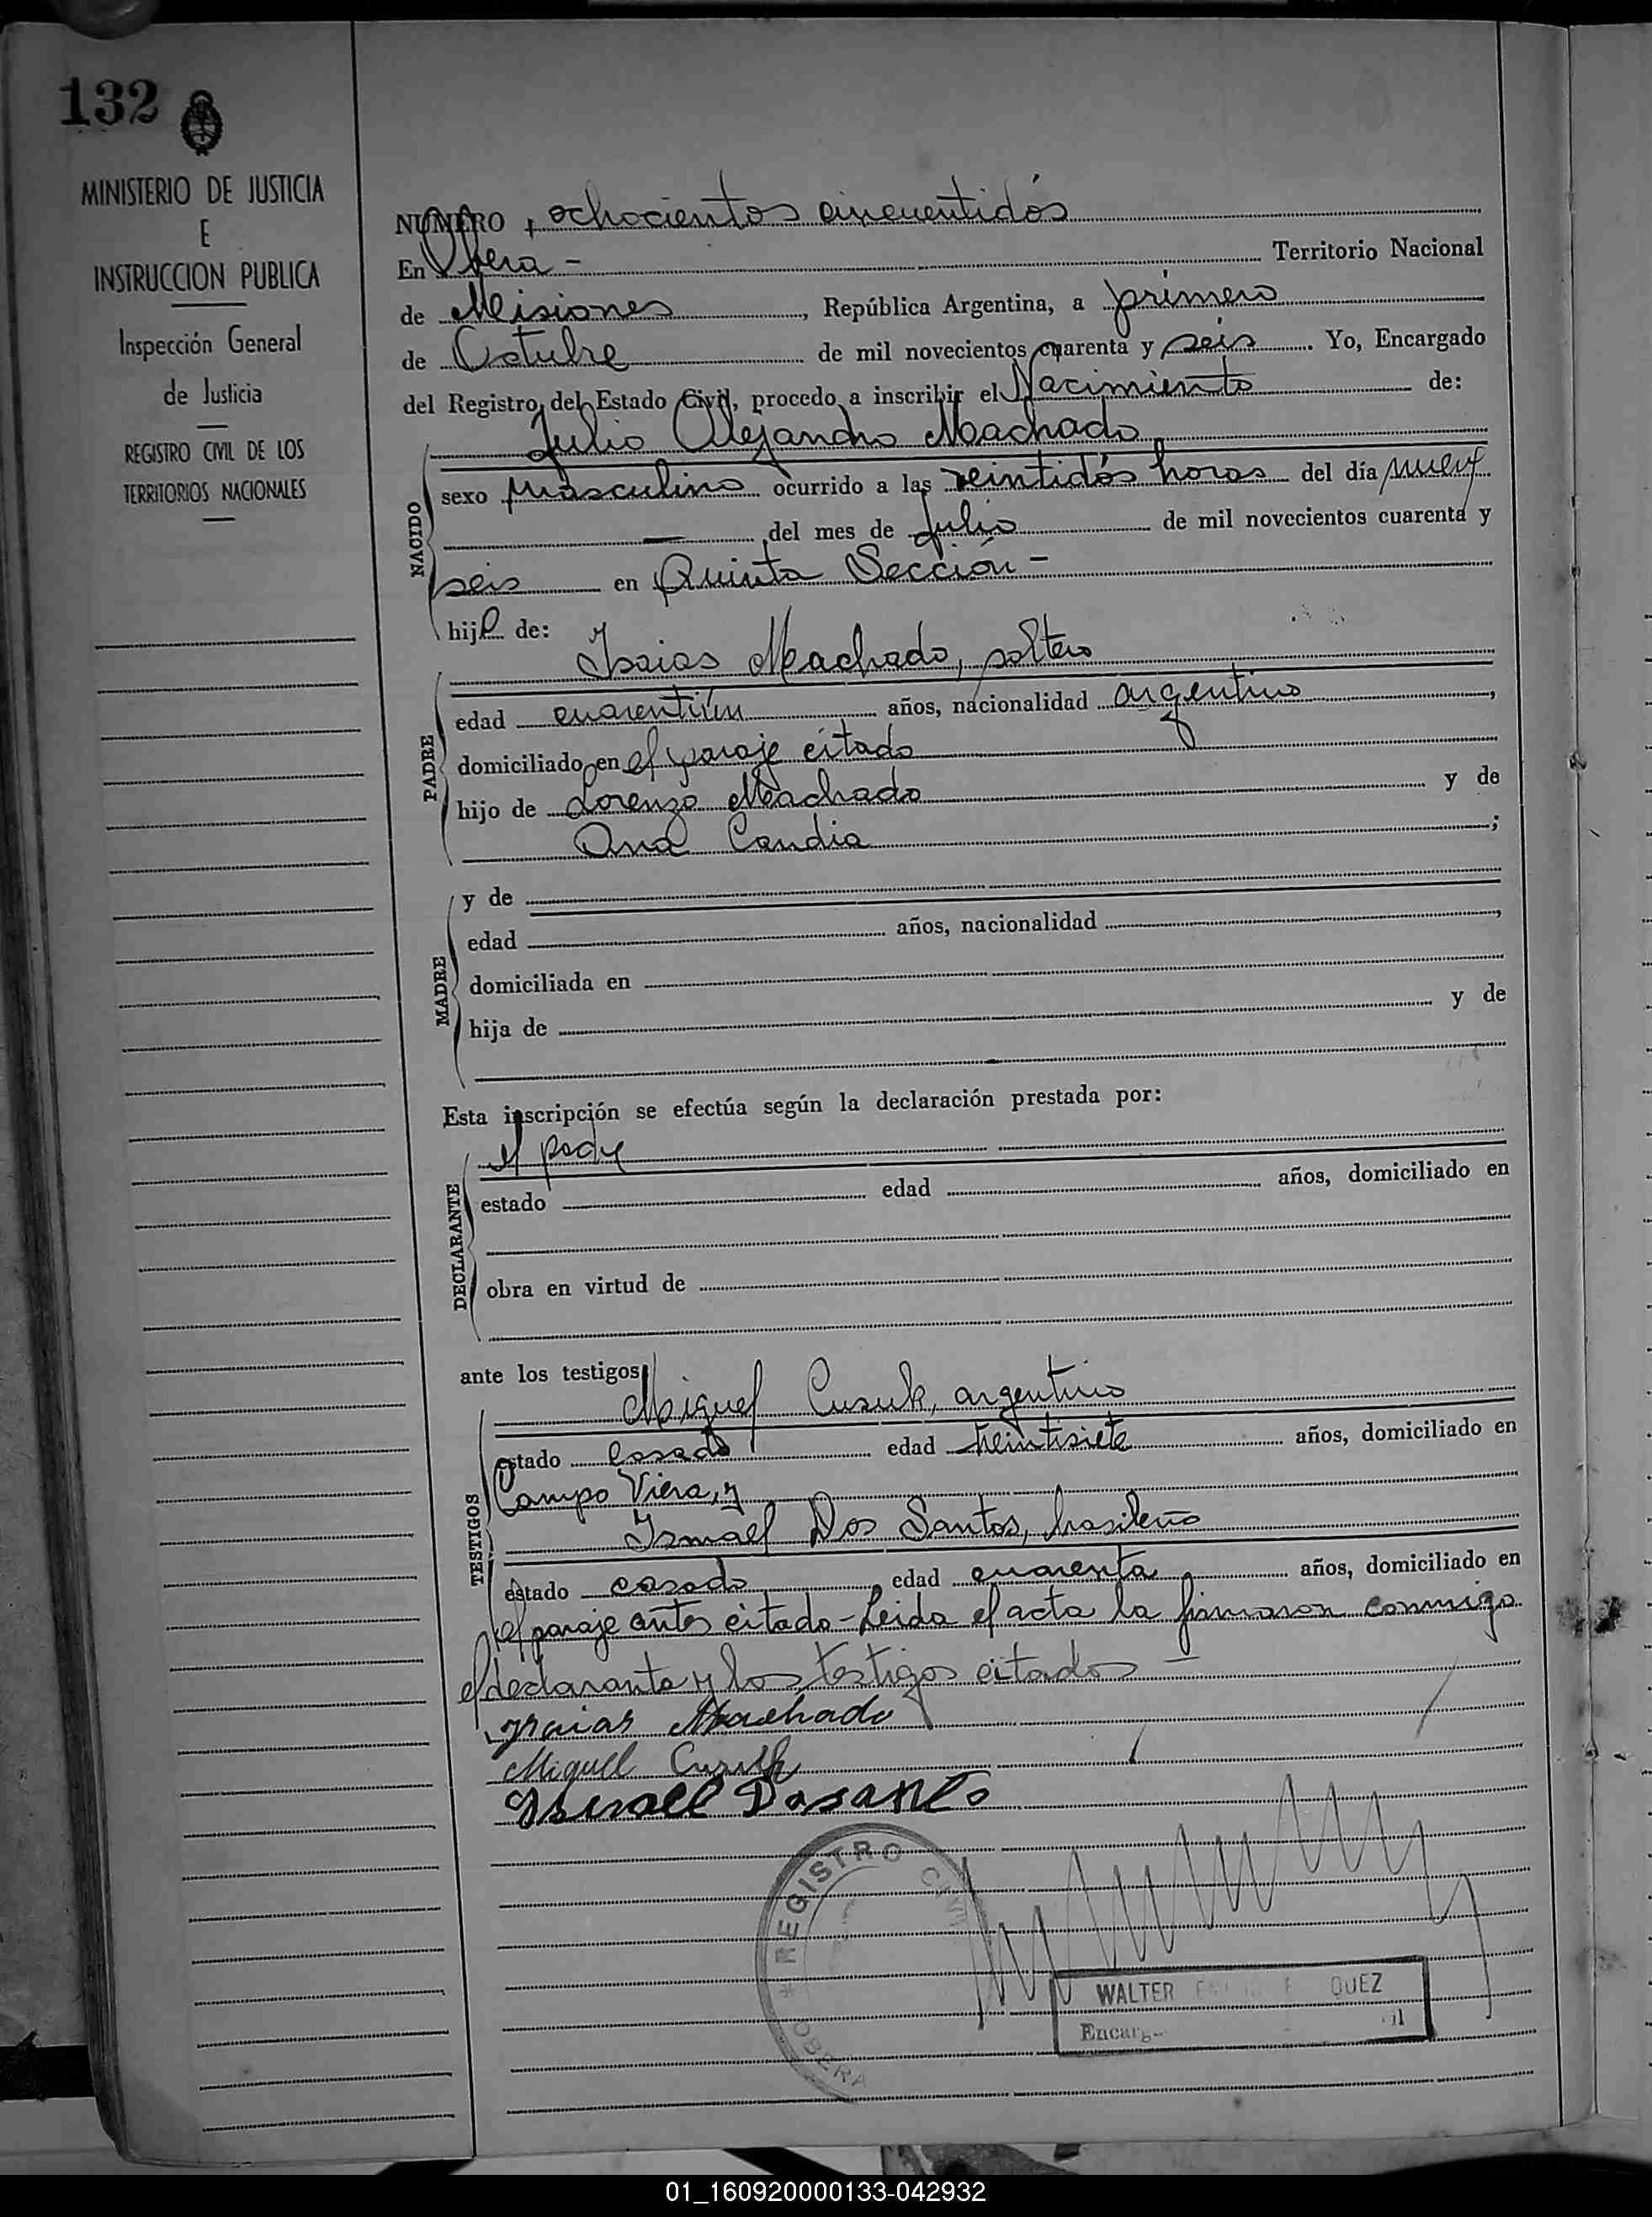 132
MINISTERIO DE JUSTICIA
E
INSTRUCCION PUBLICA
Inspección General
de Justicia
REGISTRO CIVIL DE LOS
TERRITORIOS NACIONALES
NUMERO , ochocientos cincuentidós
En Obera - Territorio Nacional
de Misiones , República Argentina, a primero
de Octubre de mil novecientos cuarenta y seis . Yo, Encargado
del Registro del Estado Civil, procedo a inscribir el Nacimiento de:
Julio Alejandro Machado
NACIDO
sexo masculino ocurrido a las veintidós horas del día nueve
— del mes de Julio de mil novecientos cuarenta y
seis en Quinta Sección -
hijo de:
Isaias Machado, soltero
PADRE
edad cuarentiún años, nacionalidad argentino ,
domiciliado en el paraje citado
hijo de Lorenzo Machado y de
Ana Candia ;
MADRE
y de
edad años, nacionalidad ,
domiciliada en
hija de y de
Esta inscripción se efectúa según la declaración prestada por:
el padre
DECLARANTE
estado edad años, domiciliado en
obra en virtud de
ante los testigos
Miguel Cusuk, argentino
TESTIGOS
estado casado edad treintisiete años, domiciliado en
Campo Viera, y
Ismael Dos Santos, brasileño
estado casado , edad cuarenta años, domiciliado en
el paraje antes citado - Leida el acta la firmaron conmigo
el declarante y los testigos citados -
Isaias Machado
Miguel Cusuk
Ismael Dosanto
REGISTRO CIVIL
OBERA
WALTER
Encarg
01_160920000133-042932